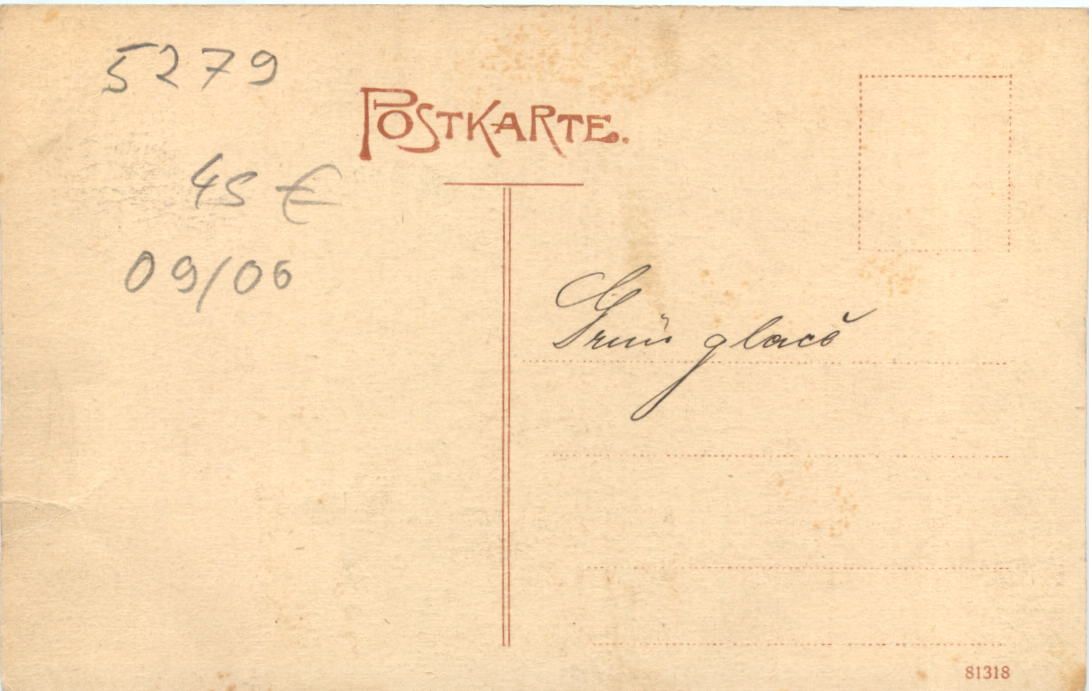 5279
POSTKARTE.
45 €
09/06
Grün glacé
81318